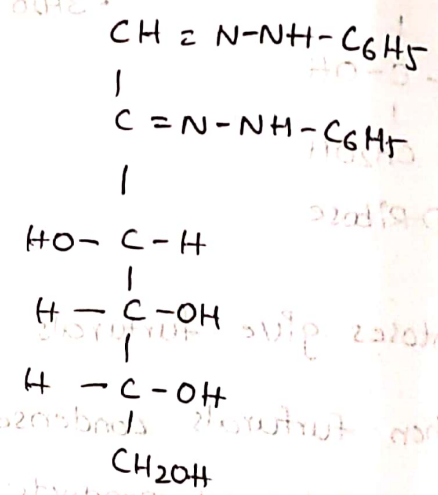 CH = N-NH-C6H5
|
C = N-NH-C6H5
|
HO- C-H
|
H — C-OH
|
H - C-OH
|
CH2OH